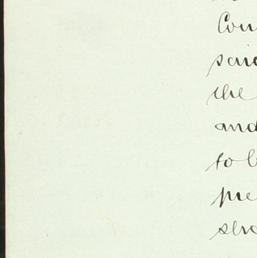 Cou
said
the
and
to b
pre
sho